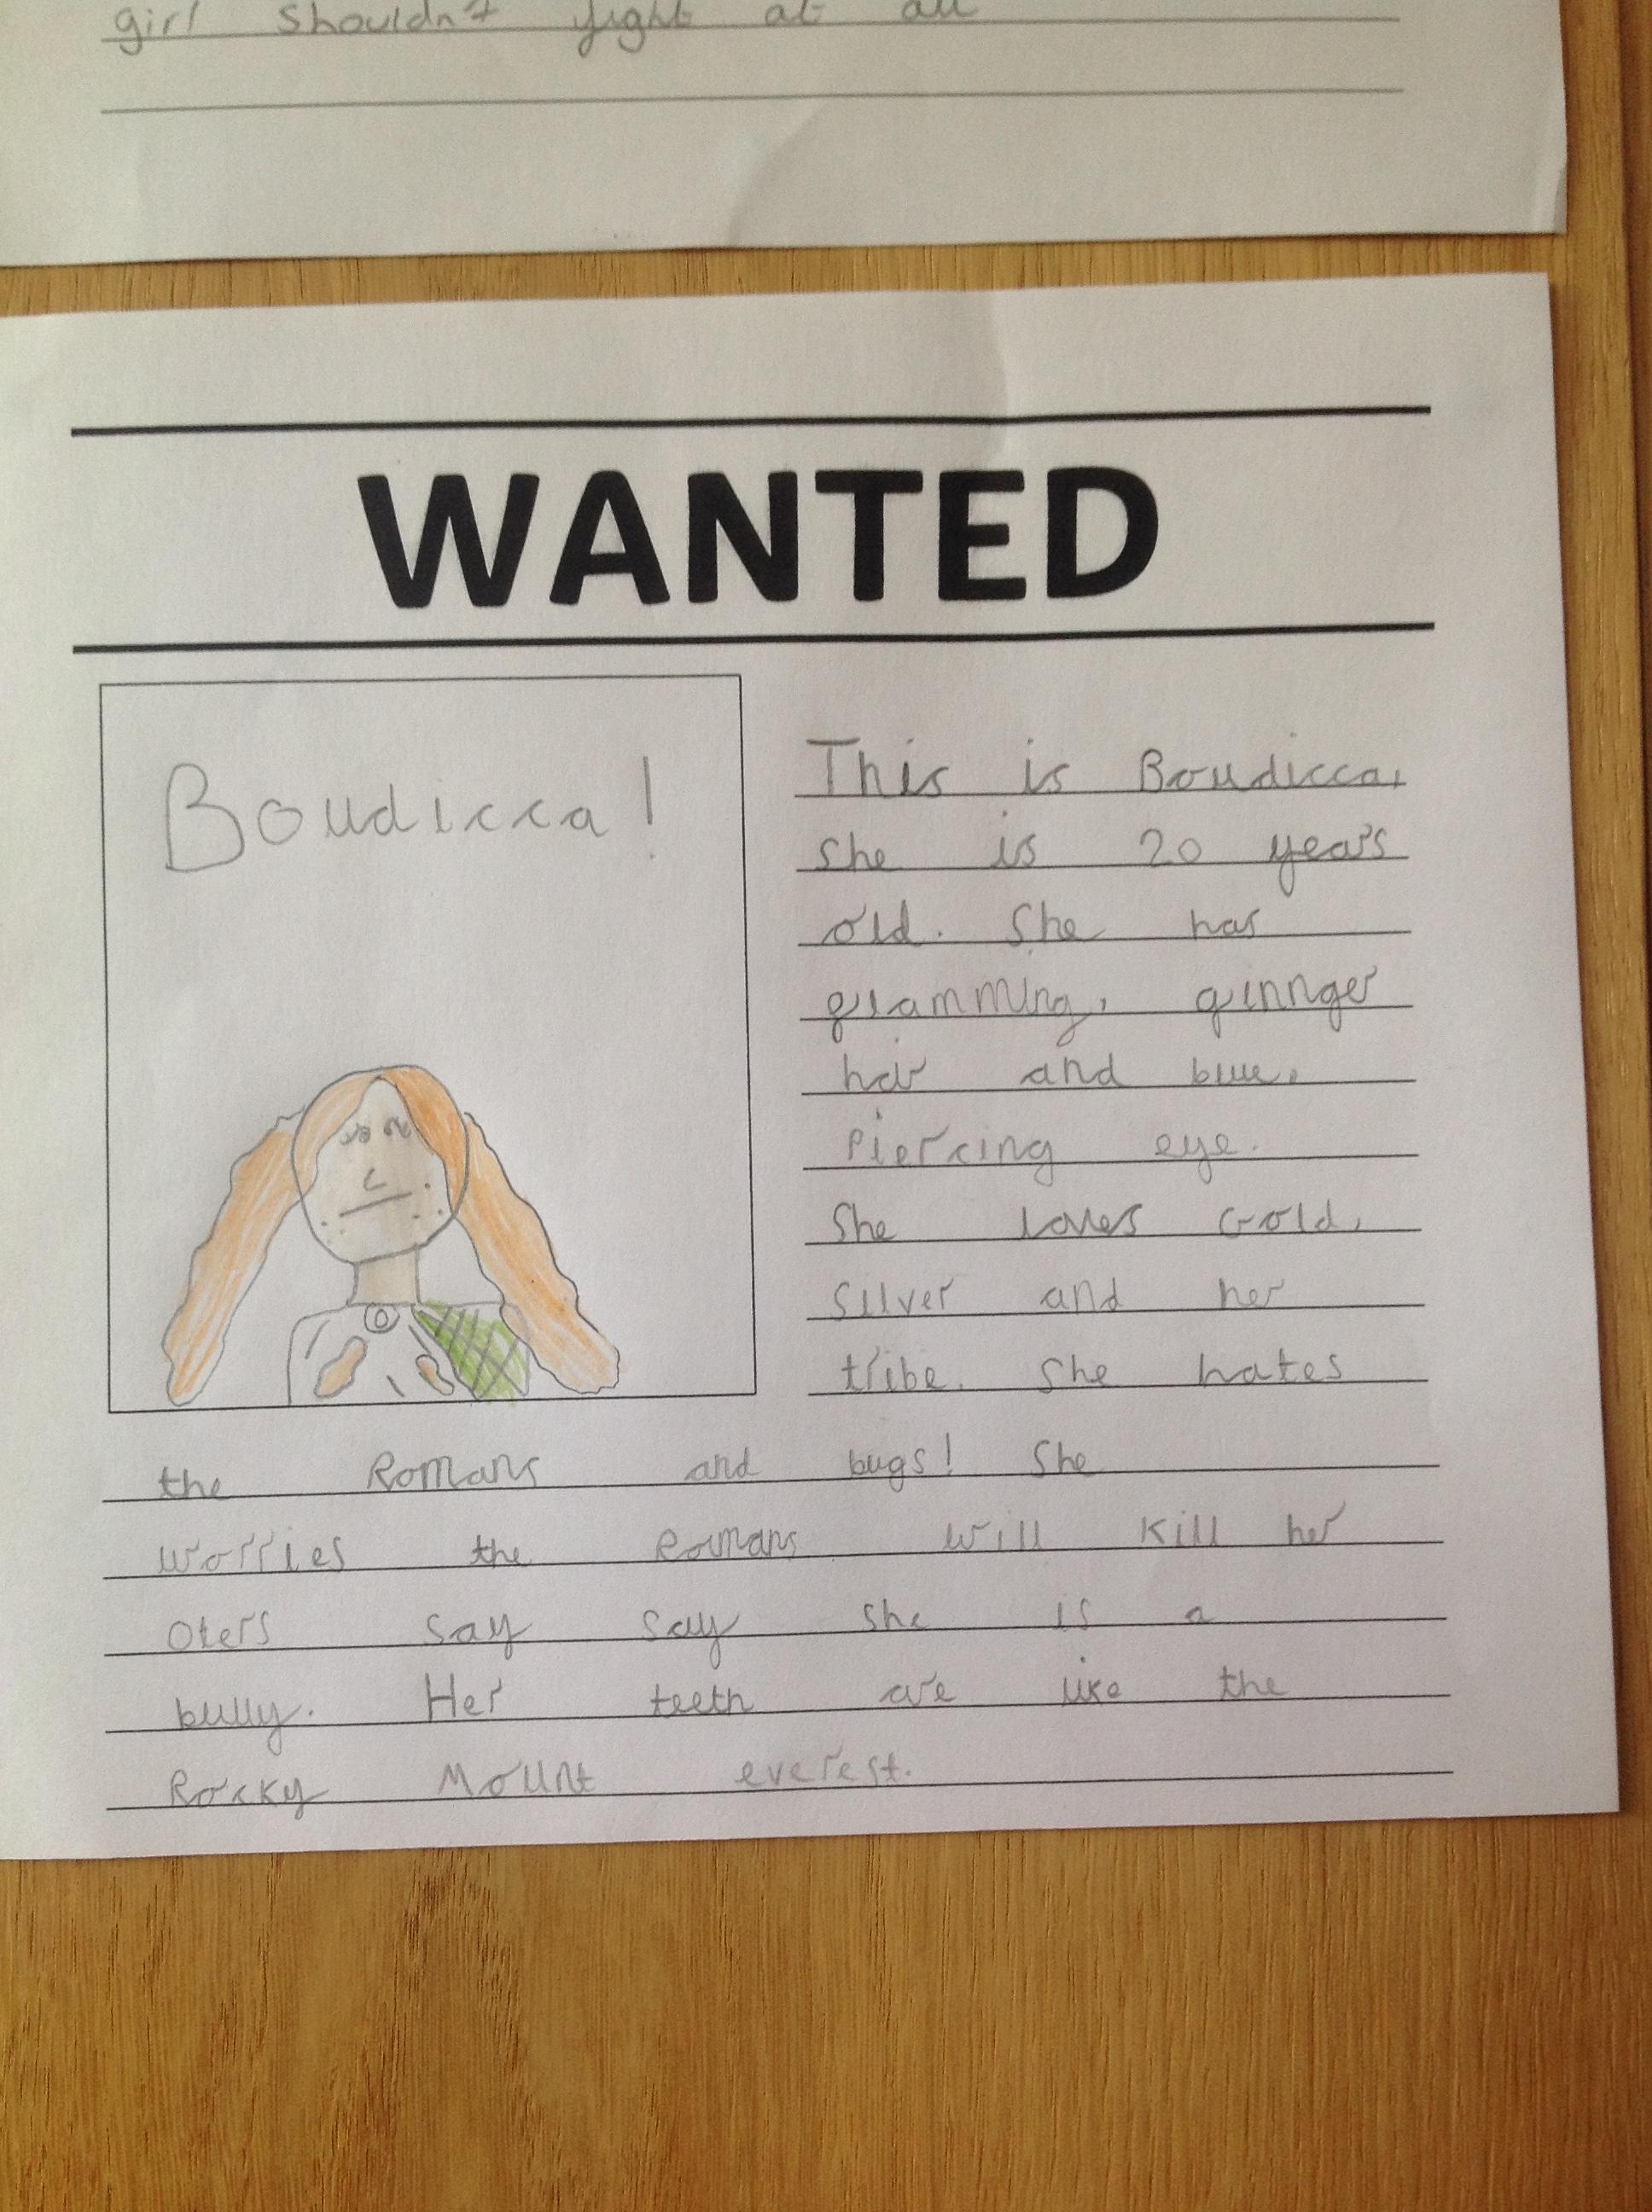 girl shouldn't fight at all
WANTED
Boudicca!
This is Boudicca,
she is 20 years
old. She has
glamming, ginnger
hair and blue,
Piercing eye.
She loves Gold,
Silver and her
tribe. She hates
the Romans and bugs! She
worries the Romans will kill her
Oters say say she is a
bully. Her teeth are like the
Rocky Mount everest.